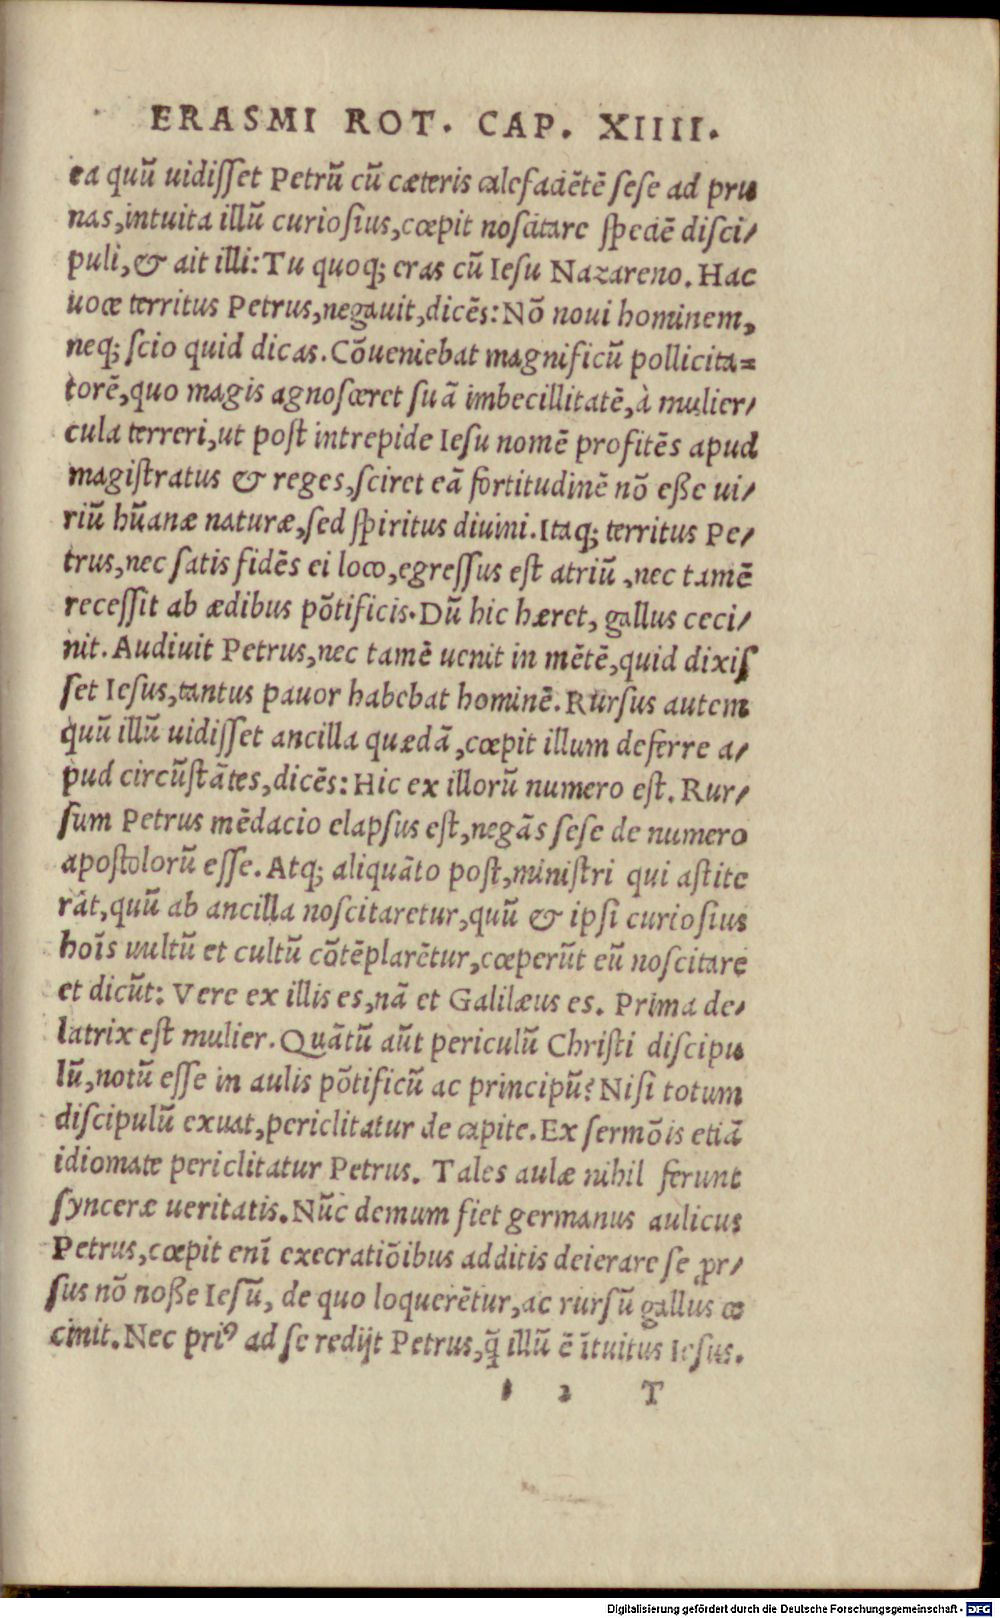 ERASMI ROT. CAP. XIIII.
ea quũ uidisset Petrũ cũ cæteris calefaciẽtẽ sese ad pru
nas, intuita illũ curiosius, cœpit noscitare speciẽ disci/
puli, & ait illi: Tu quoq; eras cũ Iesu Nazareno. Hac
uoce territus Petrus, negauit, dicẽs: Nõ noui hominem,
neq; scio quid dicas. Cõueniebat magnificũ pollicita=
torẽ, quo magis agnosceret suã imbecillitatẽ, à mulier/
cula terreri, ut post intrepide Iesu nomẽ profitẽs apud
magistratus & reges, sciret eã fortitudinẽ nõ eße ui/
riũ hũanæ naturæ, sed spiritus diuini. Itaq; territus Pe/
trus, nec satis fidẽs ei loco, egressus est atriũ, nec tamẽ
recessit ab ædibus põtificis. Dũ hic hæret, gallus ceci/
nit. Audiuit Petrus, nec tamẽ uenit in mẽtẽ, quid dixis
set Iesus, tantus pauor habebat hominẽ. Rursus autem
quũ illũ uidisset ancilla quædã, cœpit illum deferre a/
pud circũstãtes, dicẽs: Hic ex illorũ numero est. Rur/
sum Petrus mẽdacio elapsus est, negãs sese de numero
apostolorũ esse. Atq; aliquãto post, ministri qui astite
rãt, quũ ab ancilla noscitaretur, quũ & ipsi curiosius
hoĩs uultũ et cultũ cõtẽplarẽtur, cœperũt eũ noscitare
et dicũt: Vere ex illis es, nã et Galilæus es. Prima de/
latrix est mulier. Quãtũ aũt periculũ Christi discipu
lũ, notũ esse in aulis põtificũ ac principũ? Nisi totum
discipulũ exuat, periclitatur de capite. Ex sermõis etiã
idiomate periclitatur Petrus. Tales aulæ nihil ferunt
synceræ ueritatis. Nũc demum fiet germanus aulicus
Petrus, cœpit enĩ execratiõibus additis deierare se ꝓr/
sus nõ noße Iesũ, de quo loquerẽtur, ac rursũ gallus ce
cinit. Nec priꝰ ad se redijt Petrus, q̃ illũ ẽ ĩtuitus Iesus.
1 2 T
Digitalisierung gefördert durch die Deutsche Forschungsgemeinschaft - DFG